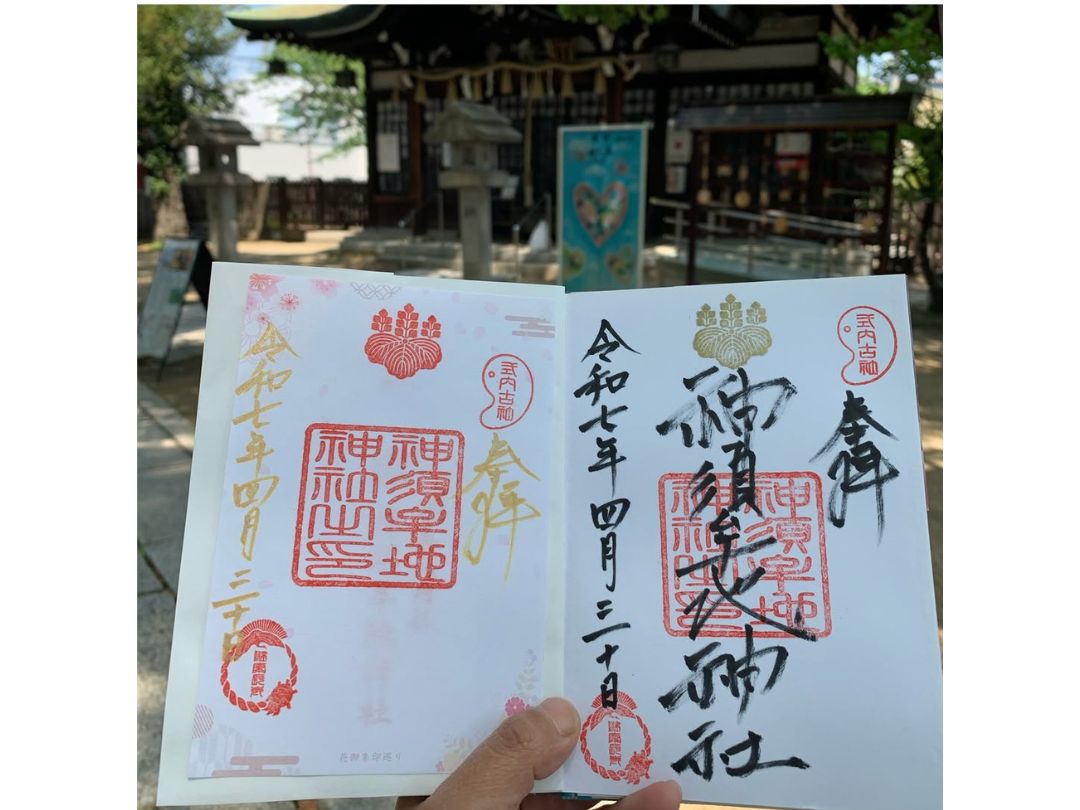 式内古社
奉拝
神須牟地神社
神須牟地
神社之印
令和七年四月三十日
式内古社
奉拝
神須牟地
神社之印
令和七年四月三十日
花御朱印巡り